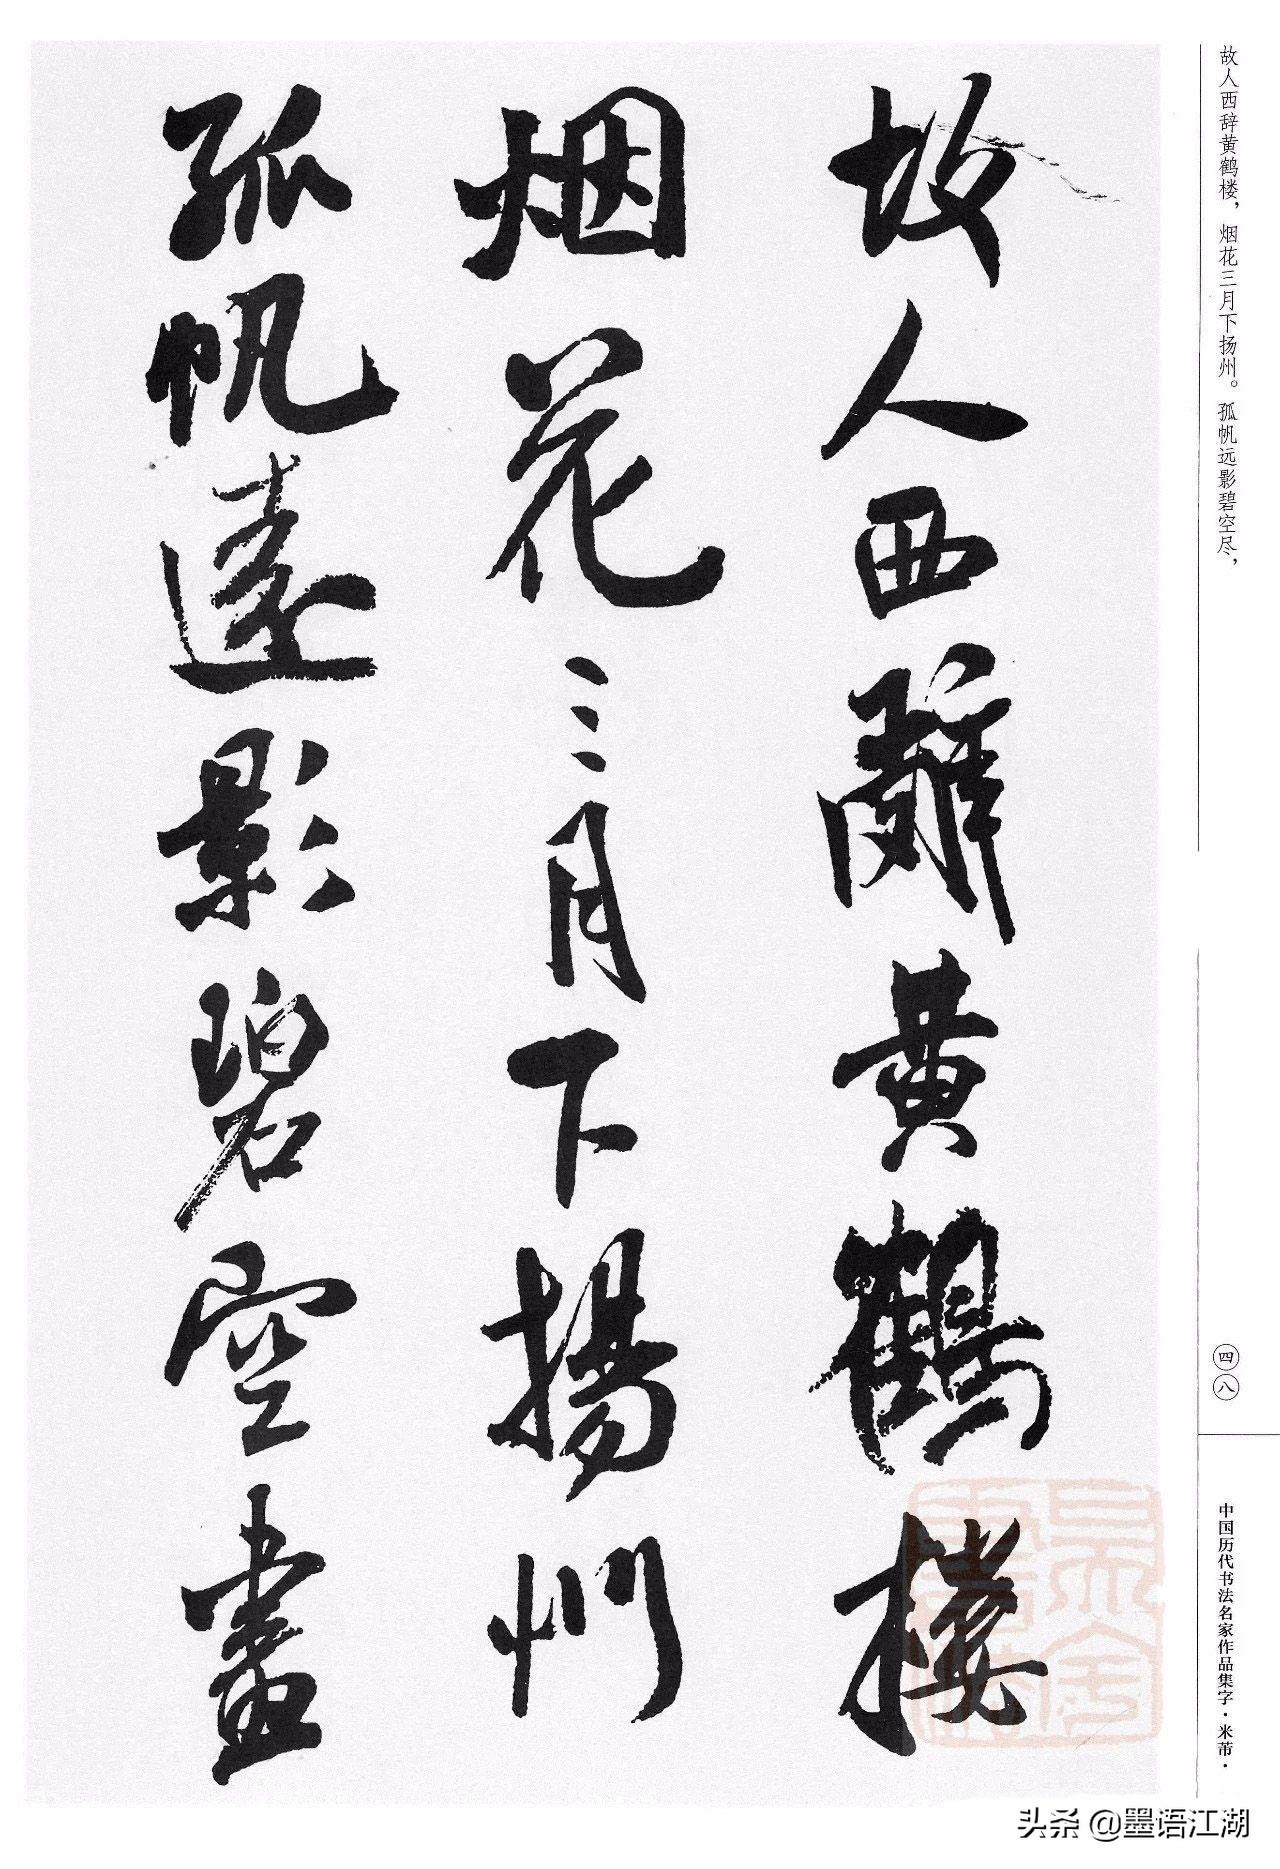 故人西辞黄鹤楼，烟花三月下扬州。孤帆远影碧空尽，
故人西辭黄鶴樓
烟花三月下揚州
孤帆遠影碧空盡
四八
中国历代书法名家作品集字·米芾·
头条 @墨语江湖